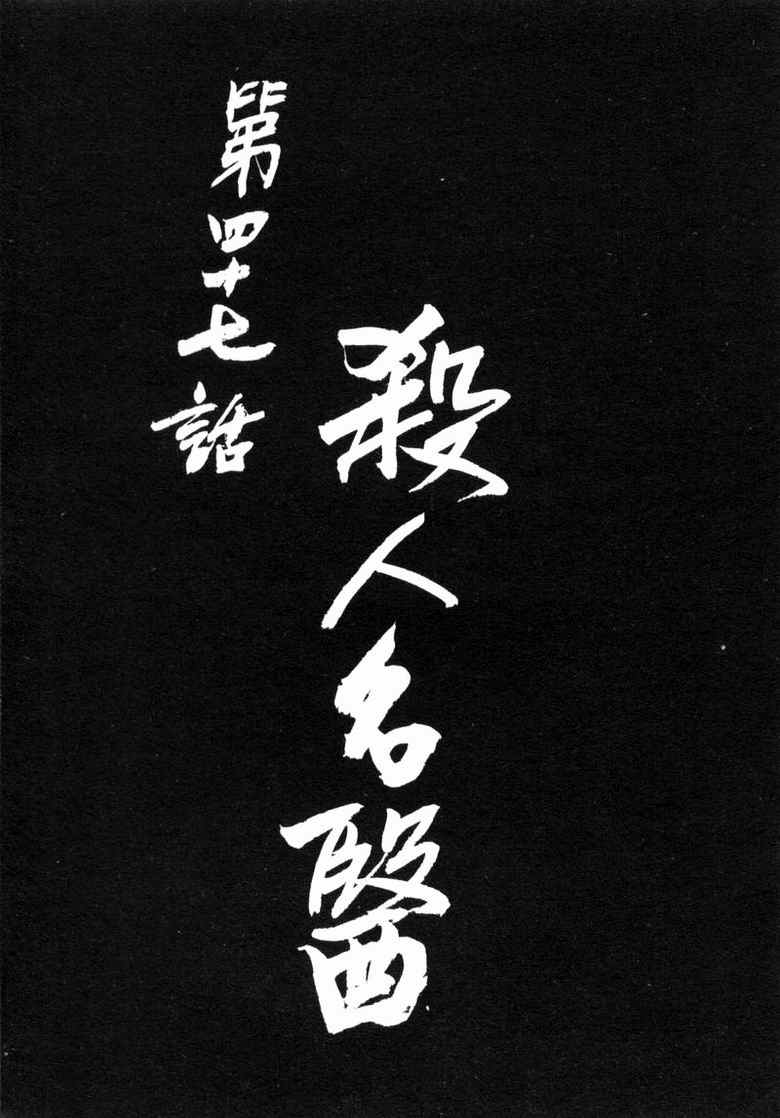 殺人名醫
第四十七話